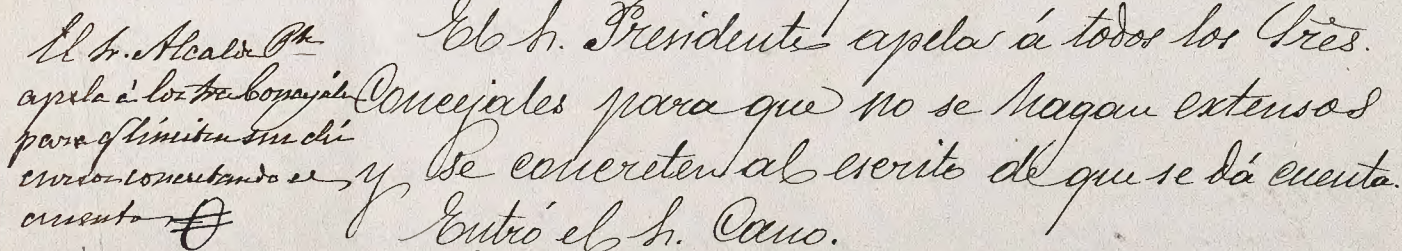 El Sr. Alcalde Pte
apela á los Sres Concejales
para q limiten sus dis
cursos concretando el
asunto
El Sr. Presidente apela á todos los Sres.
Concejales para que no se hagan extensos
y se concreten al escrito de que se dá cuenta.
Entró el Sr. Cano.